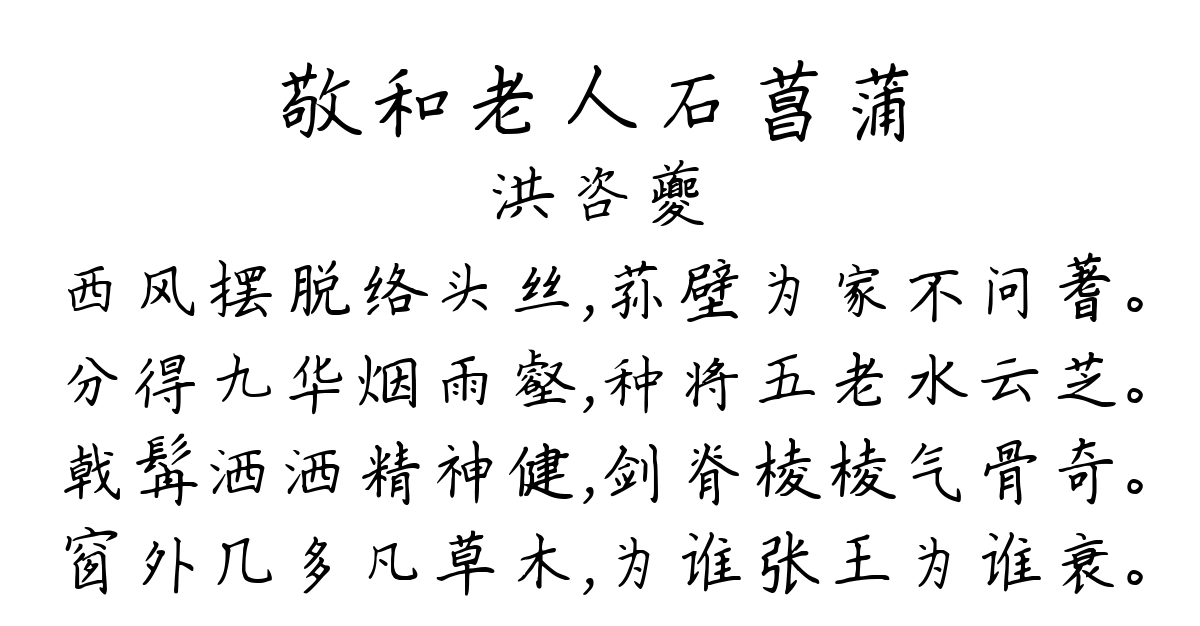 敬和老人石菖蒲
洪咨夔
西风摆脱络头丝,荪壁为家不问蓍。
分得九华烟雨壑,种将五老水云芝。
戟髯洒洒精神健,剑脊棱棱气骨奇。
窗外几多凡草木,为谁张王为谁衰。